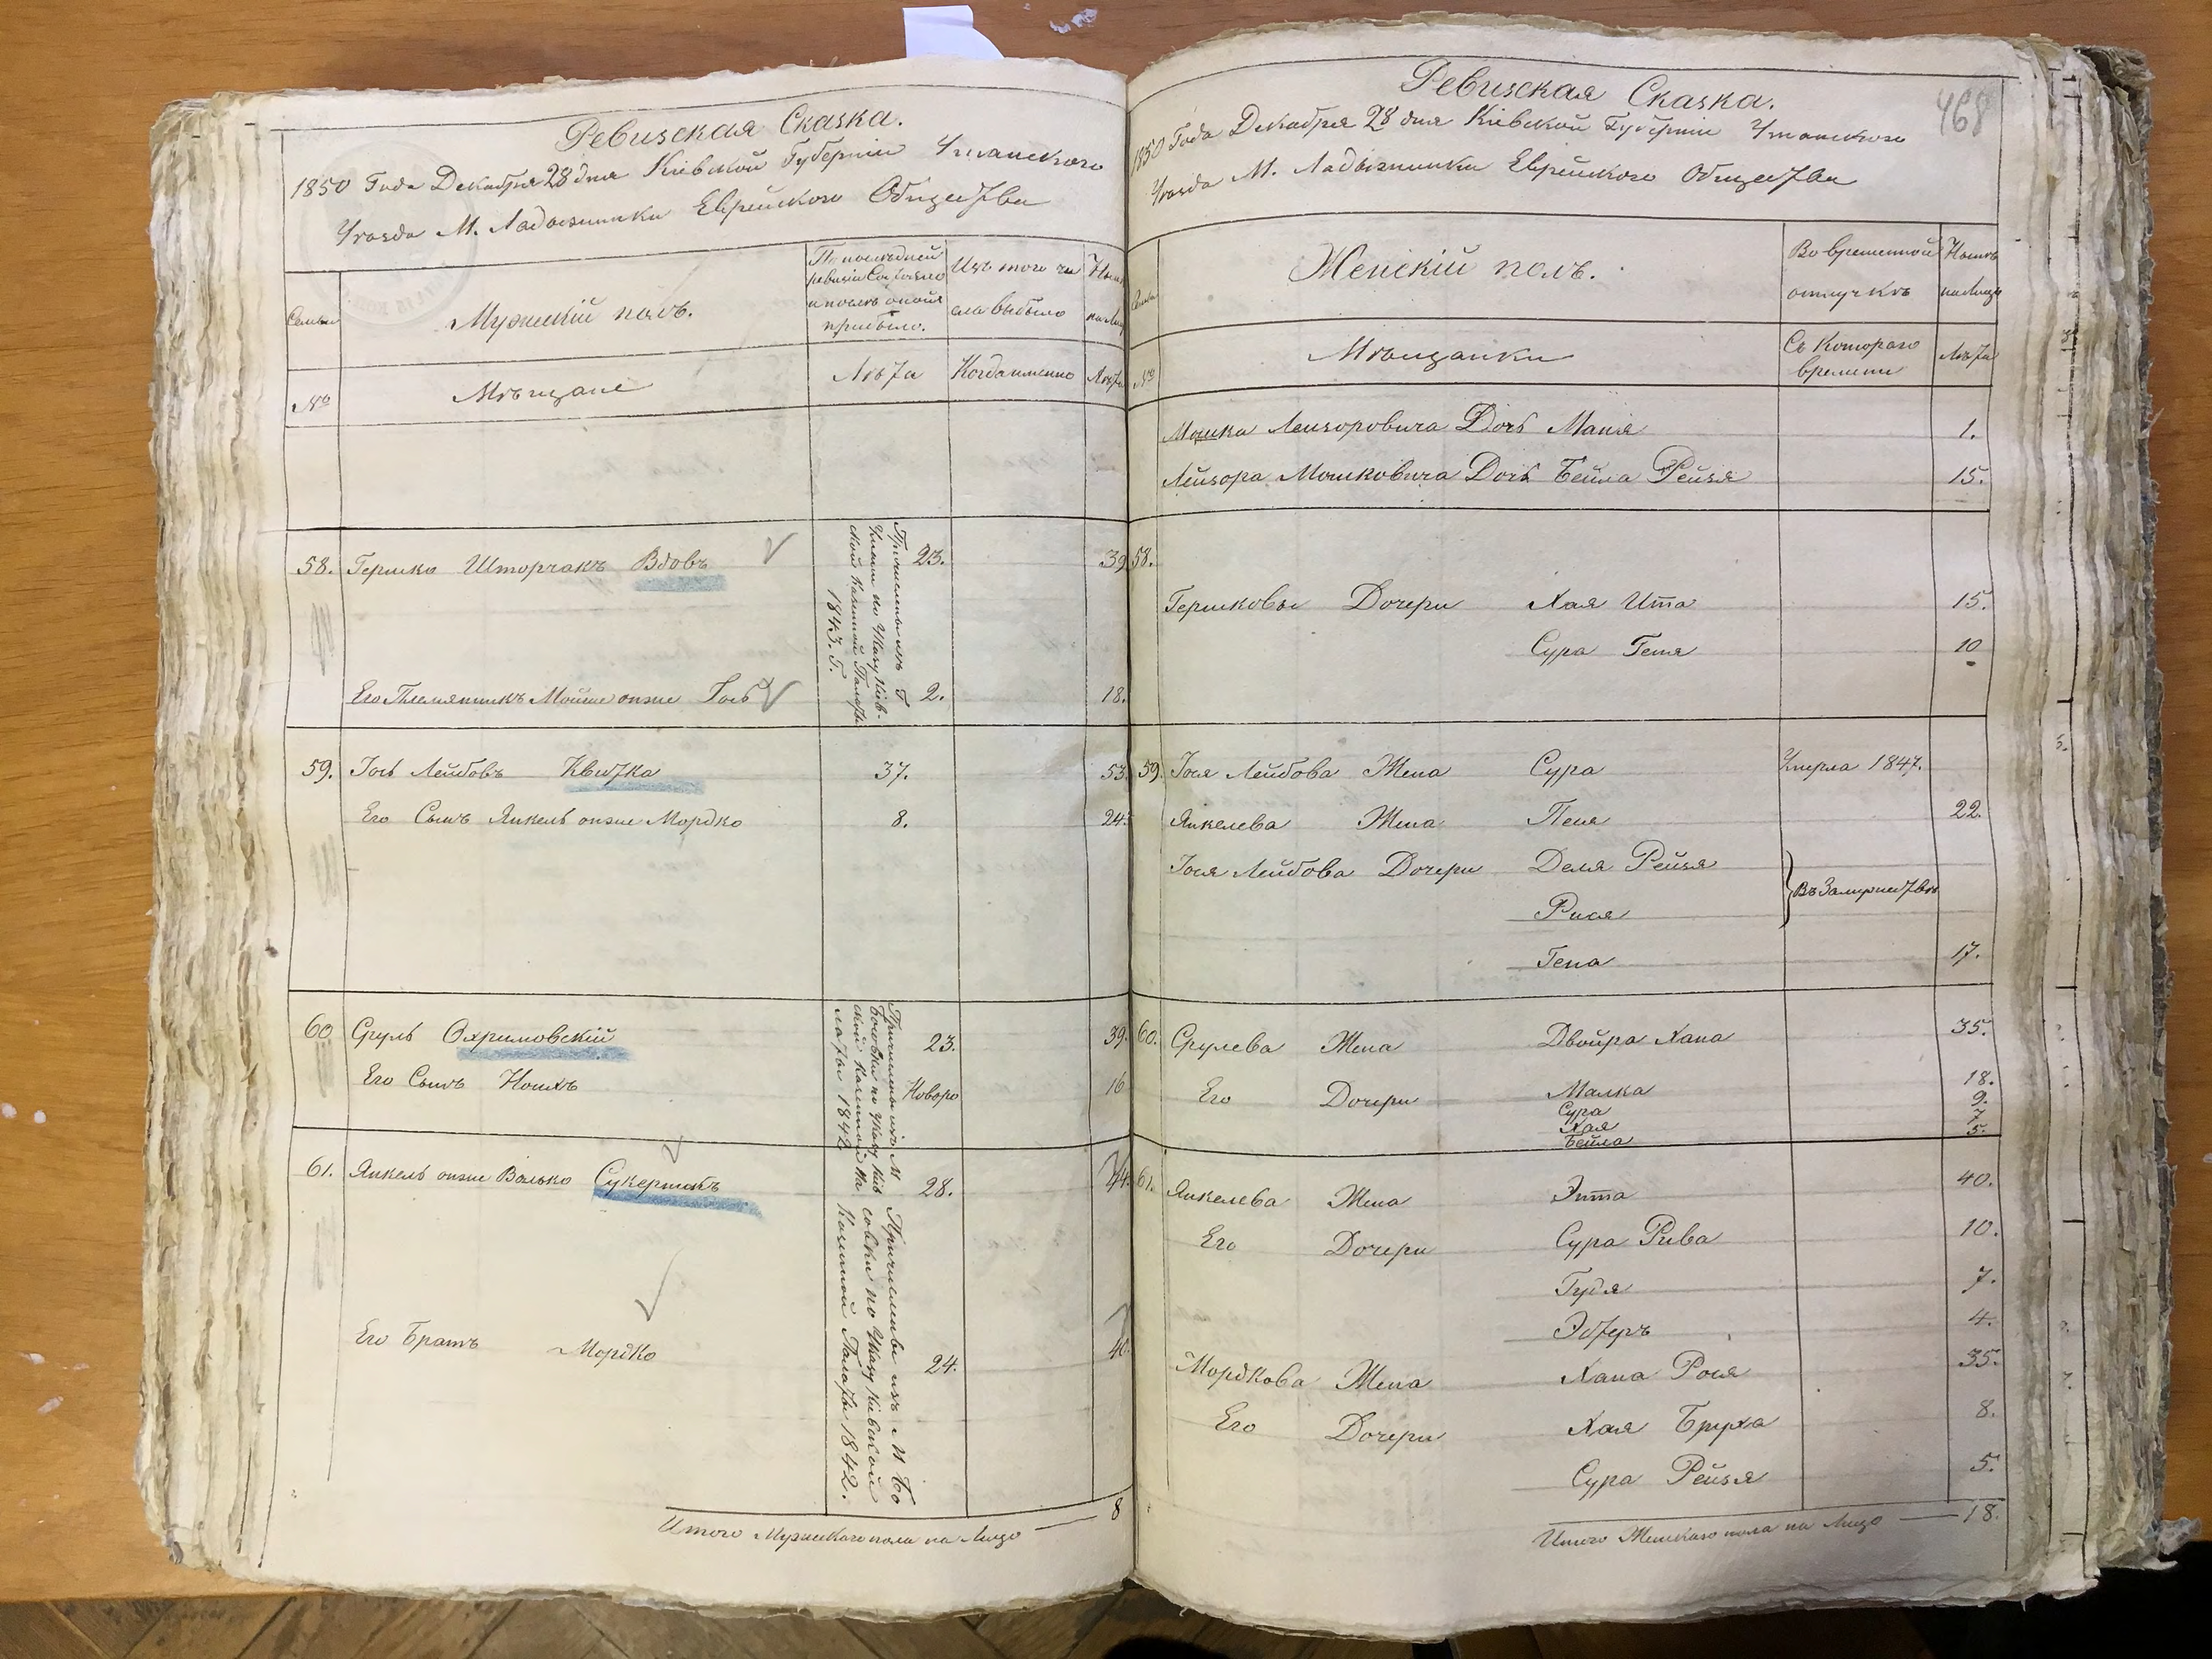 Ревизская Сказка.
1850 Года Декабря 28 дня Кіевской Губерніи Уманскаго
Уѣзда М. Ладыжинки Еврейского Общества
Семьи
Мужескій полъ.
По послѣдней
ревизіи состояло
и послѣ оной
прибыло.
Изъ того чи
сла выбыло
Нынѣ
на лицо
№
Мѣщане
Лѣта
Когда именно
Лѣта
58. Гершко Шторчакъ Вдовъ 23. 39
Его Племянникъ Мойше онже Іось 2. 18.
Причислены изъ Г.
Умани по Указу Кіев-
ской Казенной Палаты
1843. Г.
59. Іось Лейбовъ Квитка 37. 53.
Его Сынъ Янкель онже Мордко 8. 24.
60 Сруль Охримовскій 23. 39.
Его Сынъ Ношхъ Новоро 16
Причислены изъ М.
по Указу Кіев
ской Казенной Па
латы 1842
61. Янкель онже Волько Сукерникъ 28. 44.
Его Братъ Мордко 24. 40.
Причислены изъ М. Бо
совки по Указу Кіевской
Казенной Палаты 1842.
Итого Мужескаго пола на Лицо — 8
468
Ревизская Сказка.
1850 Года Декабря 28 дня Кіевской Губерніи Уманскаго
Уѣзда М. Ладыжинки Еврейского Общества
Семьи
Женскій полъ.
Во временной
отлучкѣ
Нынѣ
на Лицо
№
Мѣщанки
Съ Котораго
времени
Лѣта
Мошка Лейзоровича Дочь Маня 1.
Лейзора Мошковича Дочь Бейла Рейзя 15.
58.
Гершковы Дочери Хая Ита 15.
Сура Геня 10
59. Іося Лейбова Жена Сура Умерла 1847.
Янкелева Жена Песя 22.
Іося Лейбова Дочери Деля Рейзя
Въ Замужествѣ
Рися
Гена 17.
60. Срулева Жена Двойра Хана 35.
Его Дочери Малка 18.
Сура 9.
Хая 7
Бейла 5.
61. Янкелева Жена Этта 40.
Его Дочери Сура Рива 10.
Гудя 7.
Эстеръ 4.
Мордкова Жена Хана Рося 35.
Его Дочери Хая Бруха 8.
Сура Рейзя 5.
Итого Женскаго пола на Лицо — 18.